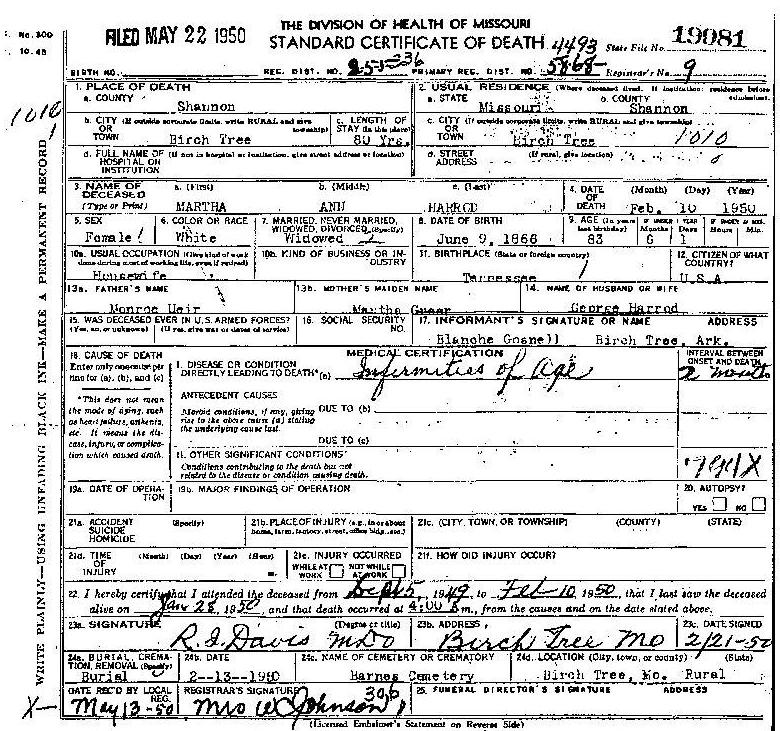 No. 300
10-48
FILED MAY 22 1950
THE DIVISION OF HEALTH OF MISSOURI
STANDARD CERTIFICATE OF DEATH
4493
State File No. 19081
BIRTH NO.
REG. DIST. NO.
PRIMARY REG. DIST. NO. 5868
Registrar's No. 9
1010
WRITE PLAINLY—USING UNFADING BLACK INK—MAKE A PERMANENT RECORD
1. PLACE OF DEATH
a. COUNTY Shannon
2. USUAL RESIDENCE (Where deceased lived. If institution: residence before admission).
a. STATE Missouri b. COUNTY Shannon
b. CITY (If outside corporate limits, write RURAL and give township) OR TOWN Birch Tree
c. LENGTH OF STAY (in this place) 80 Yrs.
c. CITY (If outside corporate limits, write RURAL and give township) OR TOWN Birch Tree 1010
d. FULL NAME OF (If not in hospital or institution, give street address or location) HOSPITAL OR INSTITUTION
d. STREET ADDRESS (If rural, give location)
3. NAME OF DECEASED (Type or Print)
a. (First) MARTHA b. (Middle) ANN c. (Last) HARROD
4. DATE OF DEATH (Month) (Day) (Year) Feb. 10 1950
5. SEX Female
6. COLOR OR RACE White
7. MARRIED, NEVER MARRIED, WIDOWED, DIVORCED (Specify) Widowed
8. DATE OF BIRTH June 9, 1866
9. AGE (In years last birthday) 83 IF UNDER 1 YEAR Months 6 Days 1 IF UNDER 24 HRS. Hours Min.
10a. USUAL OCCUPATION (Give kind of work done during most of working life, even if retired) Housewife
10b. KIND OF BUSINESS OR INDUSTRY
11. BIRTHPLACE (State or foreign country) Tennessee
12. CITIZEN OF WHAT COUNTRY? U.S.A.
13a. FATHER'S NAME Monroe
13b. MOTHER'S MAIDEN NAME Martha
14. NAME OF HUSBAND OR WIFE George Harrod
15. WAS DECEASED EVER IN U.S. ARMED FORCES? (Yes, no, or unknown) (If yes, give war or dates of service)
16. SOCIAL SECURITY NO.
17. INFORMANT'S SIGNATURE OR NAME ADDRESS
Blanche Gosnell Birch Tree, Ark.
18. CAUSE OF DEATH
Enter only one cause per line for (a), (b), and (c)
*This does not mean the mode of dying, such as heart failure, asthenia, etc. It means the disease, injury, or complication which caused death.
MEDICAL CERTIFICATION
INTERVAL BETWEEN ONSET AND DEATH
I. DISEASE OR CONDITION DIRECTLY LEADING TO DEATH* (a) Infirmities of Age
2 months
ANTECEDENT CAUSES
Morbid conditions, if any, giving rise to the above cause (a) stating the underlying cause last.
DUE TO (b)
DUE TO (c)
II. OTHER SIGNIFICANT CONDITIONS
Conditions contributing to the death but not related to the disease or condition causing death.
19a. DATE OF OPERATION
19b. MAJOR FINDINGS OF OPERATION
20. AUTOPSY? YES NO
21a. ACCIDENT SUICIDE HOMICIDE (Specify)
21b. PLACE OF INJURY (e.g., in or about home, farm, factory, street, office bldg., etc.)
21c. (CITY, TOWN, OR TOWNSHIP) (COUNTY) (STATE)
21d. TIME OF INJURY (Month) (Day) (Year) (Hour) m.
21e. INJURY OCCURRED WHILE AT WORK NOT WHILE AT WORK
21f. HOW DID INJURY OCCUR?
22. I hereby certify that I attended the deceased from Sept 5, 1949, to Feb 10, 1950, that I last saw the deceased
alive on Jan 28, 1950, and that death occurred at 4:00 m., from the causes and on the date stated above.
23a. SIGNATURE (Degree or title) Davis
23b. ADDRESS Birch Tree Mo
23c. DATE SIGNED 2/21-50
24a. BURIAL, CREMATION, REMOVAL (Specify) Burial
24b. DATE 2-13-1950
24c. NAME OF CEMETERY OR CREMATORY Barnes Cemetery
24d. LOCATION (City, town, or county) (State) Birch Tree, Mo. Rural
DATE REC'D BY LOCAL REG. May 13-50
REGISTRAR'S SIGNATURE Mrs W Johnson 306
25. FUNERAL DIRECTOR'S SIGNATURE ADDRESS
X
(Licensed Embalmer's Statement on Reverse Side)